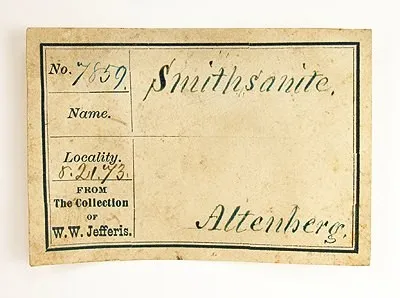 No. 7859.
Smithsanite.
Name.
Locality.
r. 21.73.
FROM
The Collection
OF
W. W. Jefferis.
Altenberg.